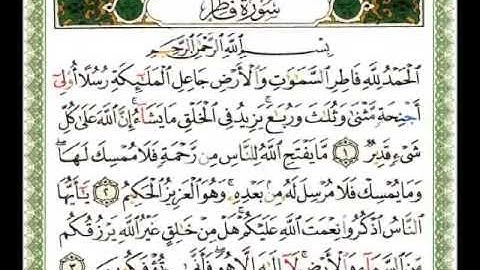 سُورَةُ فَاطِرٍ
بِسْمِ اللَّهِ الرَّحْمَٰنِ الرَّحِيمِ
الْحَمْدُ لِلَّهِ فَاطِرِ السَّمَٰوَٰتِ وَالْأَرْضِ جَاعِلِ الْمَلَٰٓئِكَةِ رُسُلًا أُو۟لِىٓ
أَجْنِحَةٍ مَّثْنَىٰ وَثُلَٰثَ وَرُبَٰعَ ۚ يَزِيدُ فِى الْخَلْقِ مَا يَشَآءُ ۚ إِنَّ اللَّهَ عَلَىٰ كُلِّ
شَىْءٍ قَدِيرٌ ١ مَّا يَفْتَحِ اللَّهُ لِلنَّاسِ مِن رَّحْمَةٍ فَلَا مُمْسِكَ لَهَا ۖ
وَمَا يُمْسِكْ فَلَا مُرْسِلَ لَهُۥ مِنۢ بَعْدِهِۦ ۚ وَهُوَ الْعَزِيزُ الْحَكِيمُ ٢ يَٰٓأَيُّهَا
النَّاسُ اذْكُرُوا۟ نِعْمَتَ اللَّهِ عَلَيْكُمْ ۚ هَلْ مِنْ خَٰلِقٍ غَيْرُ اللَّهِ يَرْزُقُكُم
مِّنَ السَّمَآءِ وَالْأَرْضِ ۚ لَآ إِلَٰهَ إِلَّا هُوَ ۖ فَأَنَّىٰ تُؤْفَكُونَ ٣